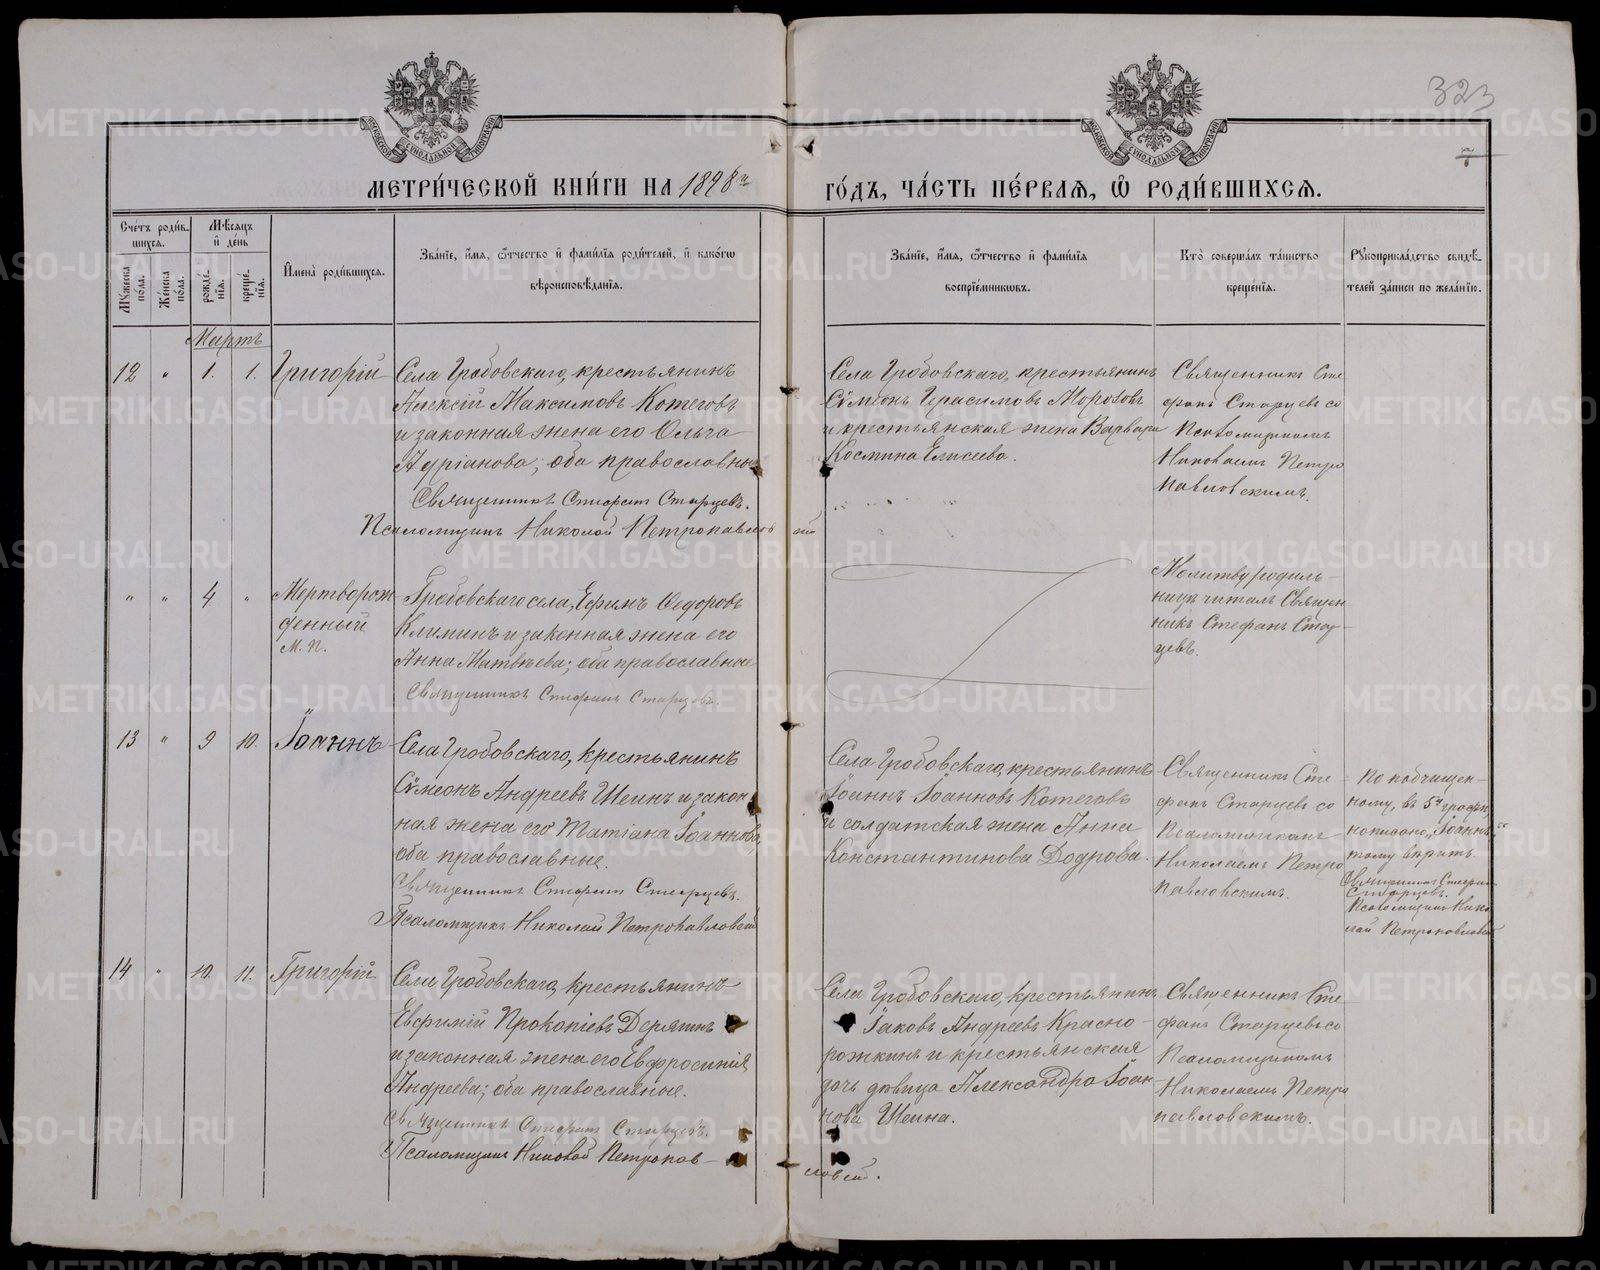 323
7
МОСКОВСКОЙ СѴНОДАЛЬНОЙ ТИПОГРАФІИ
МОСКОВСКОЙ СѴНОДАЛЬНОЙ ТИПОГРАФІИ
МЕТРИ́ЧЕСКОЙ КНИ́ГИ НА 1898й ГО́ДЪ, ЧА́СТЬ ПЕ́РВАЯ, Ѿ РОДИ́ВШИХСЯ.
Сче́тъ роди́в-
шихся.
Мѣ́сяцъ
и҆ де́нь
Мꙋжеска по́ла.
Же́нска по́ла.
рожде́-
нїя.
креще́-
нїя.
И҆мена̀ роди́вшихся.
Зва́нїе, и҆́мя, ѻ҆́тчество и҆ фами́лїя роди́телей, и҆ како́гѡ
вѣроисповѣ́данїя.
Зва́нїе, и҆́мя, ѻ҆́тчество и҆ фами́лїя
воспрїе́мникѡвъ.
Кто̀ соверша́лъ та́инство
креще́нїя.
Рꙋкоприкла́дство свидѣ́-
телей за́писи по жела́нїю.
Мартъ
12 " 1. 1. Григорій
Села Гробовскаго, крестьянинъ
Алексій Максимовъ Котеговъ
и законная жена его Ольга
Адріанова; оба православные
Священникъ Стефанъ Старцевъ.
Псаломщикъ Николай Петропавловскій
Села Гробовскаго, крестьянинъ
Сѵмеонъ Герасимовъ Морозовъ
и крестьянская жена Варвара
Космина Елисеева.
Священникъ Сте
фанъ Старцевъ со
Псаломщикомъ
Николаемъ Петро
павловскимъ.
" " 4 " Мертворож
денный
м. п.
Гробовскаго села, Ефимъ Ѳедоровъ
Климинъ и законная жена его
Анна Матвѣева; оба православные
Священникъ Стефанъ Старцевъ.
Молитву родиль-
ницѣ читалъ Священ
никъ Стефанъ Стар-
цевъ.
13 " 9 10. Іоаннъ
Села Гробовскаго, крестьянинъ
Сѵмеонъ Андреевъ Шеинъ и закон
ная жена его Татіана Іоаннова,
оба православные.
Священникъ Стефанъ Старцевъ.
Псаломщикъ Николай Петропавловскій
Села Гробовскаго, крестьянинъ
Іоаннъ Іоанновъ Котеговъ
и солдатская жена Анна
Константинова Додрова.
Священникъ Сте-
фанъ Старцевъ со
Псаломщикомъ
Николаемъ Петро
павловскимъ.
По подчищен-
ному, въ 5й графѣ,
написано „Іоаннъ"
тому вѣрить.
Священникъ Стефанъ
Старцевъ.
Псаломщикъ Нико
лай Петропавловскій
14 " 10. 11. Григорій
Села Гробовскаго, крестьянинъ
Евфимій Прокопіевъ Дерягинъ
и законная жена его Евфросинія
Андреева; оба православные.
Священникъ Стефанъ Старцевъ.
Псаломщикъ Николай Петропав-
ловскій.
Села Гробовскаго, крестьянинъ
Іаковъ Андреевъ Красно-
рожкинъ и крестьянская
дочь дѣвица Александра Іоан-
нова Шеина.
Священникъ Сте-
фанъ Старцевъ со
Псаломщикомъ
Николаемъ Петро
павловскимъ.
METRIKI.GASO-URAL.RU